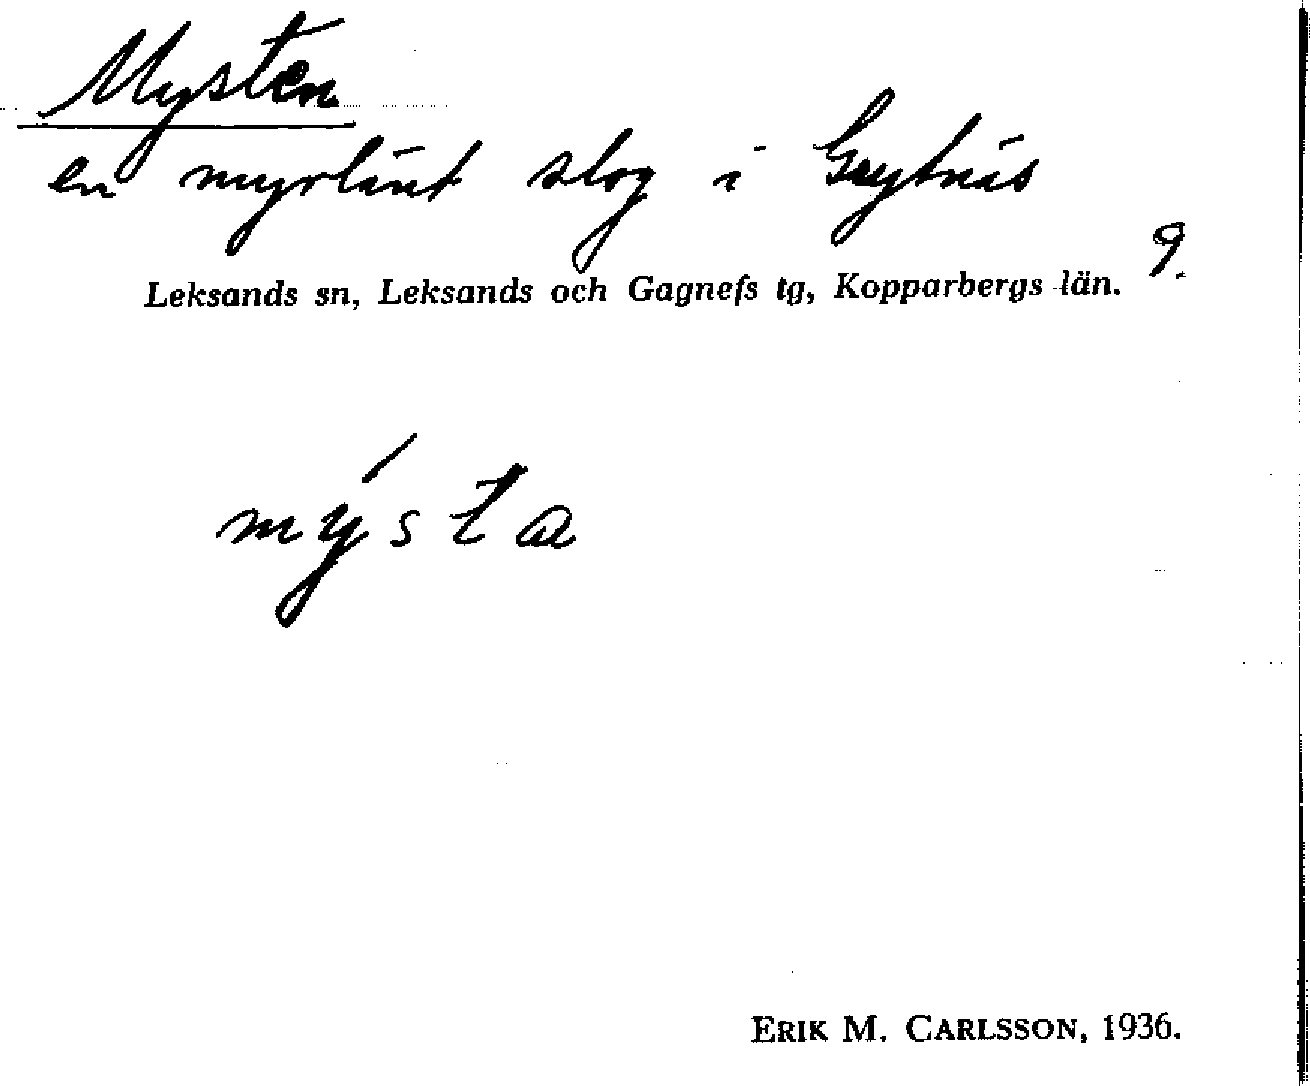 Mysten
en myrlänt slog i Grytnäs
9.
Leksands sn, Leksands och Gagnefs tg, Kopparbergs län.
mýsta
ERIK M. CARLSSON, 1936.